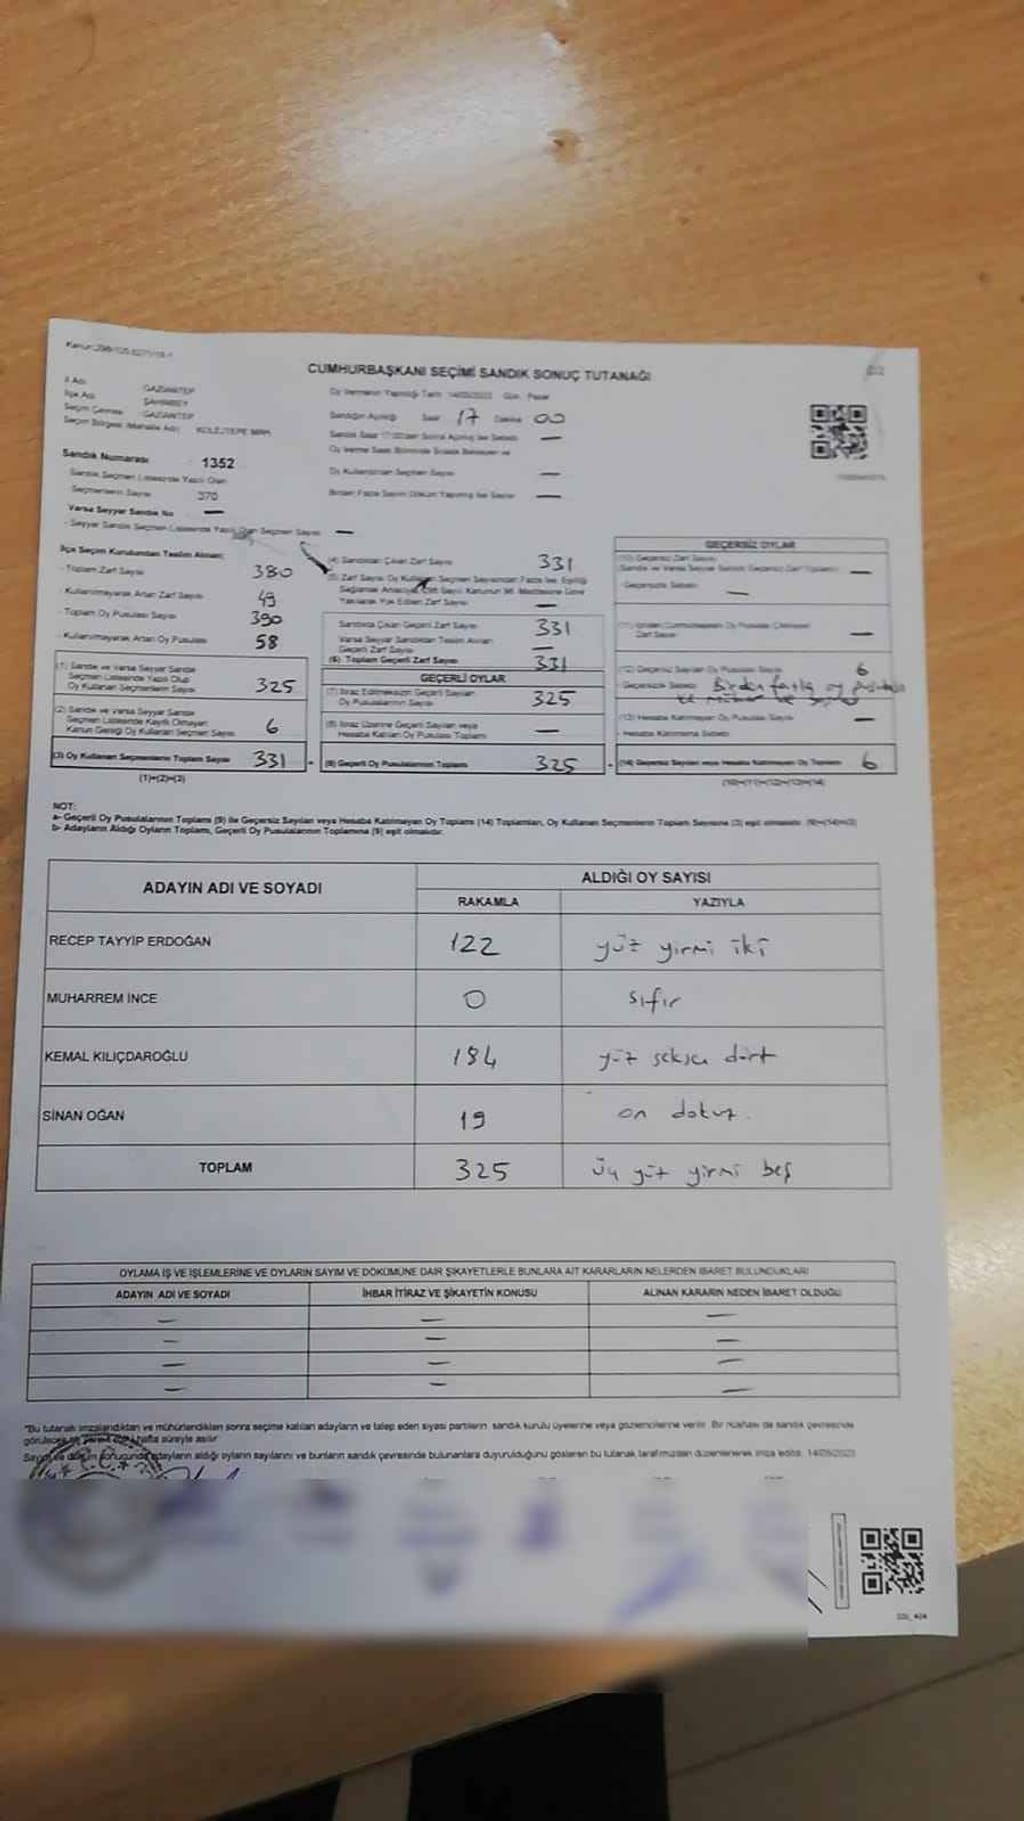 CUMHURBAŞKANI SEÇİMİ SANDIK SONUÇ TUTANAĞI
İl Adı GAZİANTEP
İlçe Adı ŞAHİNBEY
Seçim Çevresi GAZİANTEP
Seçim Bölgesi (Mahalle Adı) KOLEJTEPE MAH.
Sandık Numarası 1352
Sandık Seçmen Listesinde Yazılı Olan
Seçmenlerin Sayısı 370
Varsa Seyyar Sandık No —
- Seyyar Sandık Seçmen Listesinde Yazılı Olan Seçmen Sayısı —
Oy Vermenin Yapıldığı Tarih 14/05/2023 Gün Pazar
Sandığın Açıldığı Saat 17 Dakika 00
Oy Kullandıran Seçmen Sayısı —
İlçe Seçim Kurulundan Teslim Alınan:
- Toplam Zarf Sayısı 380
- Kullanılmayarak Artan Zarf Sayısı 49
- Toplam Oy Pusulası Sayısı 390
- Kullanılmayarak Artan Oy Pusulası 58
(1) Sandık ve Varsa Seyyar Sandık
Seçmen Listesinde Yazılı Olup
Oy Kullanan Seçmenlerin Sayısı 325
(2) Sandık ve Varsa Seyyar Sandık
Seçmen Listesinde Kayıtlı Olmayan
Kanun Gereği Oy Kullanan Seçmen Sayısı 6
(3) Oy Kullanan Seçmenlerin Toplam Sayısı 331
(1)+(2)=(3)
(4) Sandıktan Çıkan Zarf Sayısı 331
Sandıkta Çıkan Geçerli Zarf Sayısı 331
Varsa Seyyar Sandıktan Teslim Alınan
Geçerli Zarf Sayısı —
(6) Toplam Geçerli Zarf Sayısı 331
GEÇERLİ OYLAR
(7) İtiraz Edilmeksizin Geçerli Sayılan
Oy Pusulası Sayısı 325
(8) İtiraz Üzerine Geçerli Sayılan veya
Hesaba Katılan Oy Pusulası Toplamı —
(9) Geçerli Oy Pusulalarının Toplamı 325
GEÇERSİZ OYLAR
(12) Geçersiz Sayılan Oy Pusulası Sayısı 6
- Geçersizlik Sebebi Birden fazla oy
(13) Hesaba Katılmayan Oy Pusulası Sayısı —
- Hesaba Katılmama Sebebi
(14) Geçersiz Sayılan veya Hesaba Katılmayan Oy Toplamı 6
(10)+(11)+(12)+(13)=(14)
NOT:
a- Geçerli Oy Pusulalarının Toplamı (9) ile Geçersiz Sayılan veya Hesaba Katılmayan Oy Toplamı (14) Toplamları, Oy Kullanan Seçmenlerin Toplam Sayısına (3) eşit olmalıdır. (9)+(14)=(3)
b- Adayların Aldığı Oyların Toplamı, Geçerli Oy Pusulalarının Toplamına (9) eşit olmalıdır.
ADAYIN ADI VE SOYADI ALDIĞI OY SAYISI
RAKAMLA YAZIYLA
RECEP TAYYİP ERDOĞAN 122 yüz yirmi iki
MUHARREM İNCE 0 sıfır
KEMAL KILIÇDAROĞLU 184 yüz seksen dört
SİNAN OĞAN 19 on dokuz.
TOPLAM 325 üç yüz yirmi beş
OYLAMA İŞ VE İŞLEMLERİNE VE OYLARIN SAYIM VE DÖKÜMÜNE DAİR ŞİKAYETLERLE BUNLARA AİT KARARLARIN NELERDEN İBARET BULUNDUKLARI
ADAYIN ADI VE SOYADI İHBAR İTİRAZ VE ŞİKAYETİN KONUSU ALINAN KARARIN NEDEN İBARET OLDUĞU
— — —
— — —
— — —
— — —
"Bu tutanak imzalandıktan ve mühürlendikten sonra seçime katılan adayların ve talep eden siyasi partilerin sandık kurulu üyelerine veya gözlemcilerine verilir. Bir nüshası da sandık çevresinde
hafta süreyle asılır
adayların aldığı oyların sayılarını ve bunların sandık çevresinde bulunanlara duyurulduğunu gösteren bu tutanak tarafımızdan düzenlenerek imza edildi. 14/05/2023